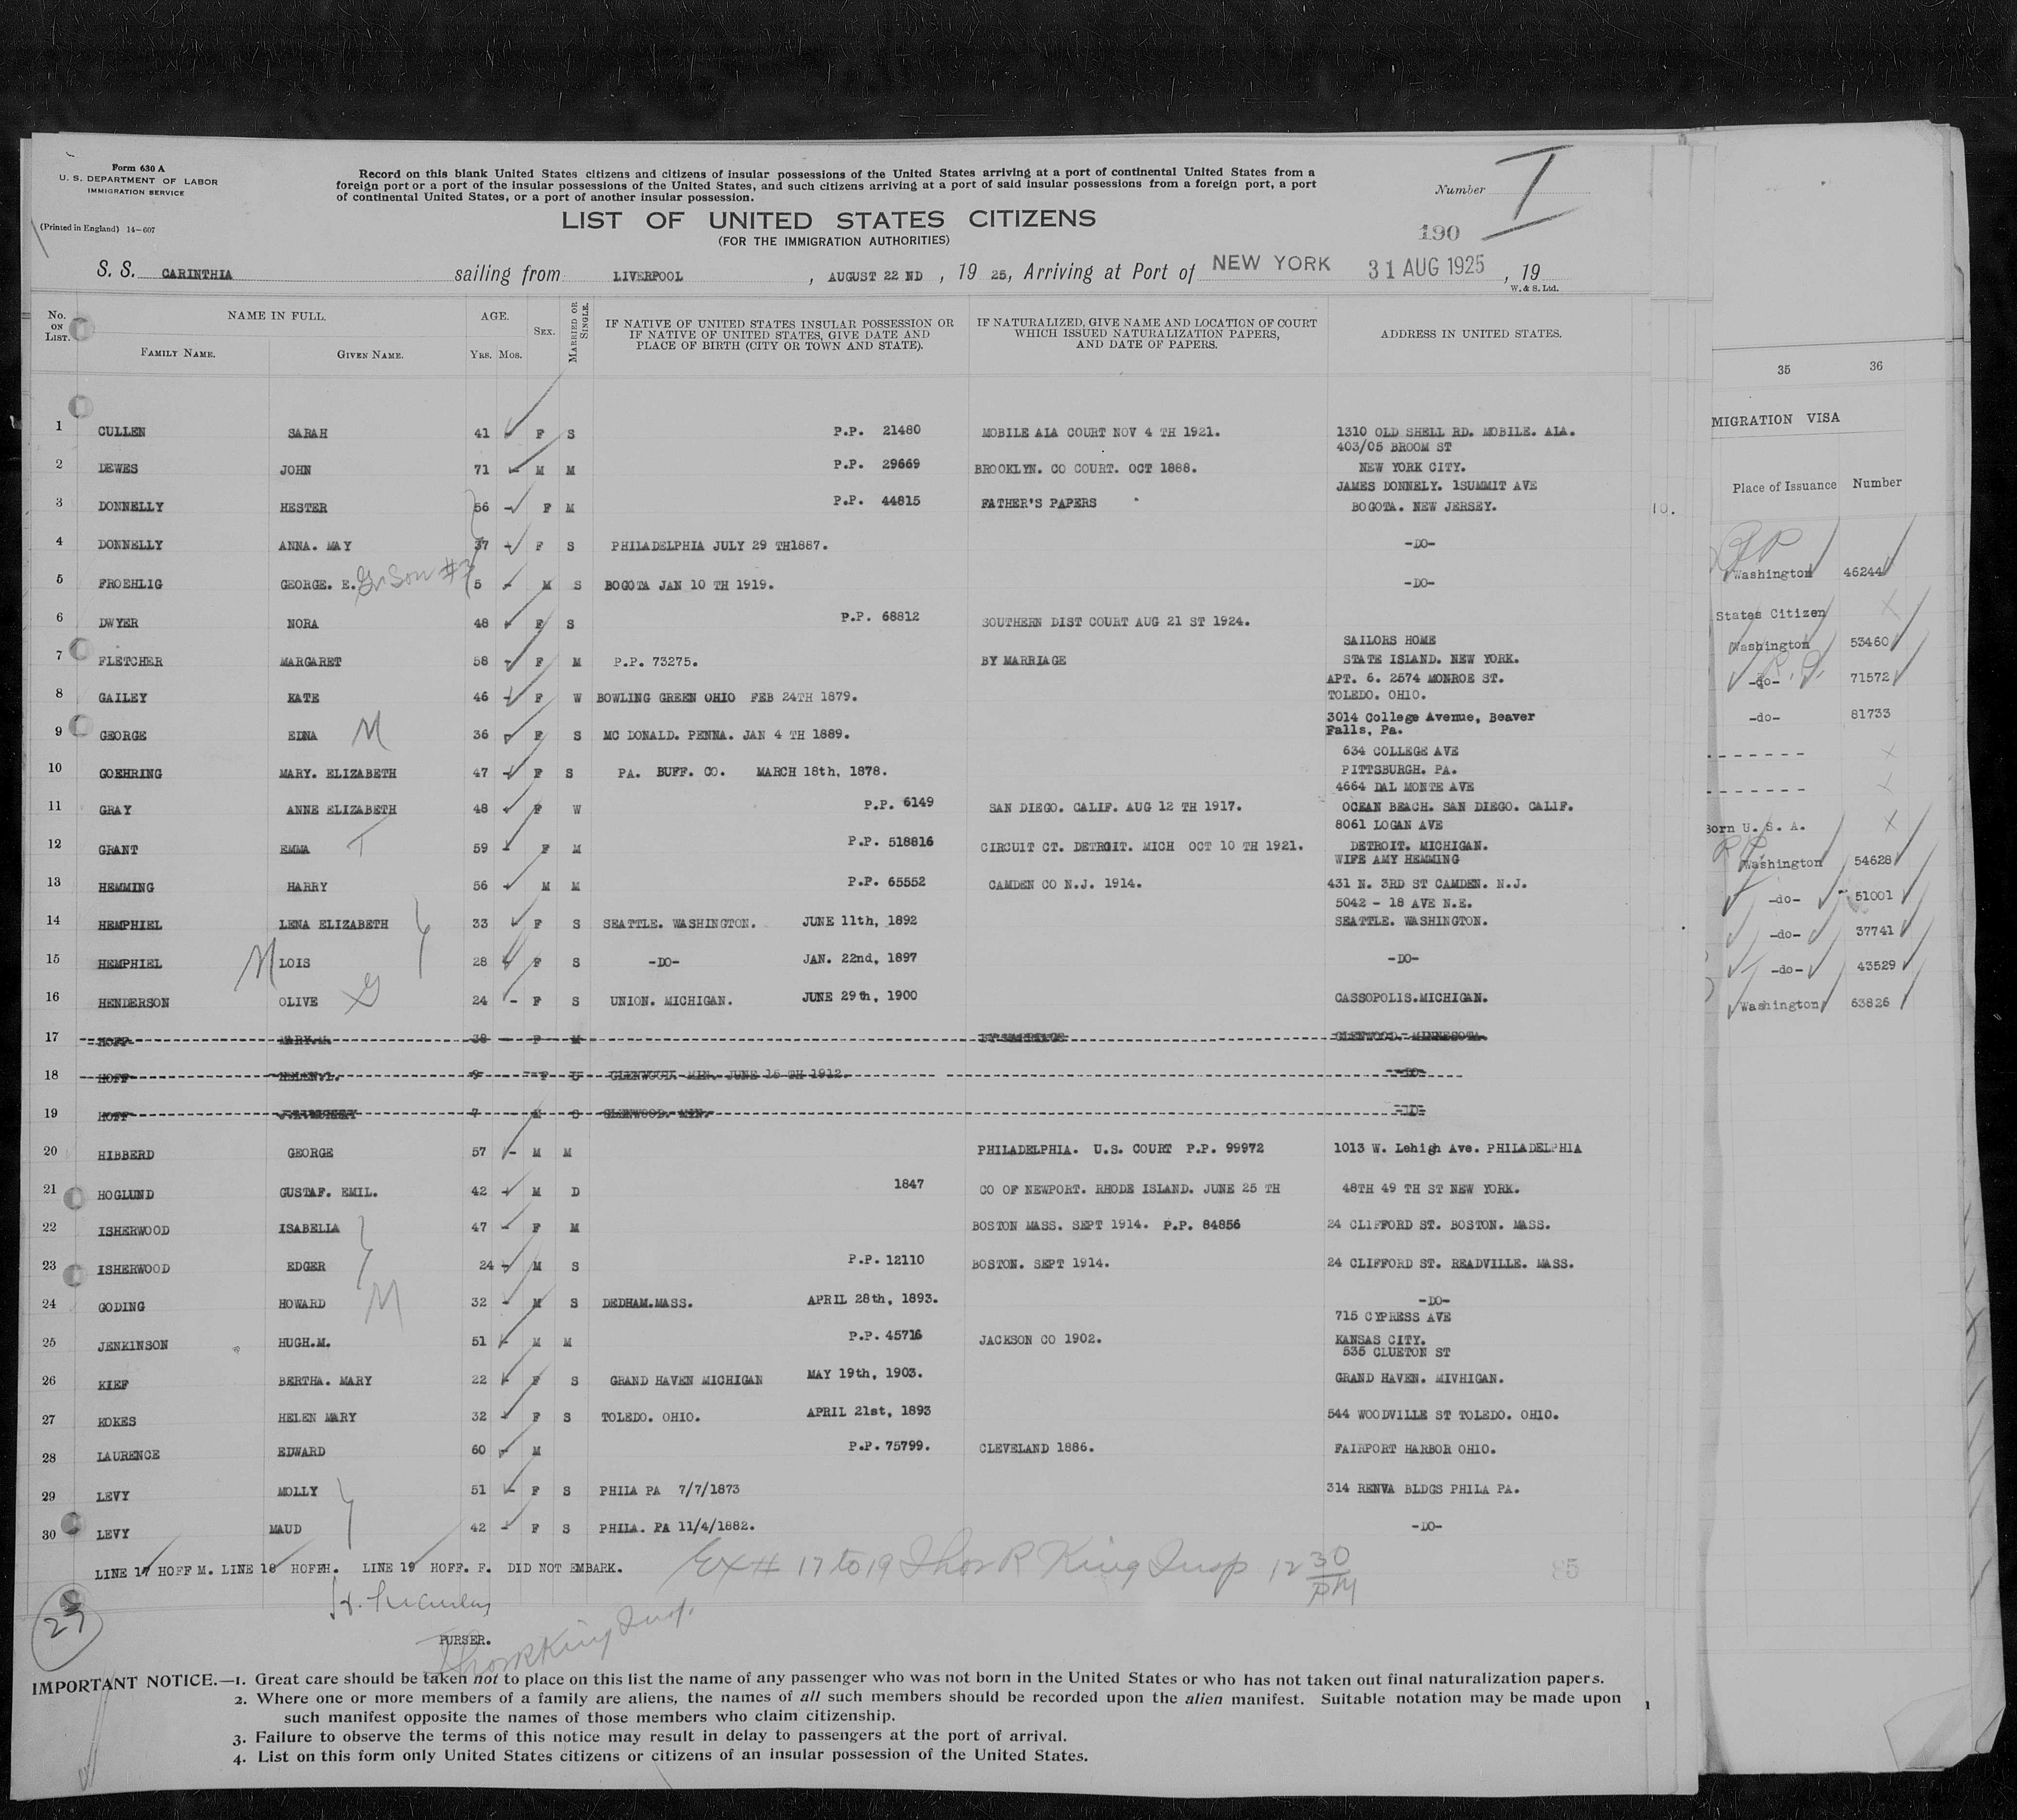 Form 630 A
U. S. DEPARTMENT OF LABOR
IMMIGRATION SERVICE
(Printed in England) 14—607
Record on this blank United States citizens and citizens of insular possessions of the United States arriving at a port of continental United States from a
foreign port or a port of the insular possessions of the United States, and such citizens arriving at a port of said insular possessions from a foreign port, a port
of continental United States, or a port of another insular possession.
Number I
LIST OF UNITED STATES CITIZENS
(FOR THE IMMIGRATION AUTHORITIES)
190
S. S. CARINTHIA sailing from LIVERPOOL, AUGUST 22 ND, 19 25, Arriving at Port of NEW YORK 31 AUG 1925, 19
W. & S. Ltd.
No. ON LIST. NAME IN FULL. AGE. SEX. MARRIED OR SINGLE. IF NATIVE OF UNITED STATES INSULAR POSSESSION OR IF NATIVE OF UNITED STATES, GIVE DATE AND PLACE OF BIRTH (CITY OR TOWN AND STATE). IF NATURALIZED, GIVE NAME AND LOCATION OF COURT WHICH ISSUED NATURALIZATION PAPERS, AND DATE OF PAPERS. ADDRESS IN UNITED STATES.
FAMILY NAME. GIVEN NAME. YRS. MOS.
1 CULLEN SARAH 41 F S P.P. 21480 MOBILE ALA COURT NOV 4 TH 1921. 1310 OLD SHELL RD. MOBILE. ALA.
403/05 BROOM ST
2 DEWES JOHN 71 M M P.P. 29669 BROOKLYN. CO COURT. OCT 1888. NEW YORK CITY.
JAMES DONNELY. 1SUMMIT AVE
3 DONNELLY HESTER 56 F M P.P. 44815 FATHER'S PAPERS BOGOTA. NEW JERSEY.
4 DONNELLY ANNA. MAY 37 F S PHILADELPHIA JULY 29 TH1887. -DO-
5 FROEHLIG GEORGE. E. Gr Son #3 5 M S BOGOTA JAN 10 TH 1919. -DO-
6 DWYER NORA 48 F S P.P. 68812 SOUTHERN DIST COURT AUG 21 ST 1924.
SAILORS HOME
7 FLETCHER MARGARET 58 F M P.P. 73275. BY MARRIAGE STATE ISLAND. NEW YORK.
APT. 6. 2574 MONROE ST.
8 GAILEY KATE 46 F W BOWLING GREEN OHIO FEB 24TH 1879. TOLEDO. OHIO.
3014 College Avenue, Beaver
9 GEORGE EDNA M 36 F S MC DONALD. PENNA. JAN 4 TH 1889. Falls, Pa.
634 COLLEGE AVE
10 GOEHRING MARY. ELIZABETH 47 F S PA. BUFF. CO. MARCH 18th, 1878. PITTSBURGH. PA.
4664 DAL MONTE AVE
11 GRAY ANNE ELIZABETH 48 F W P.P. 6149 SAN DIEGO. CALIF. AUG 12 TH 1917. OCEAN BEACH. SAN DIEGO. CALIF.
8061 LOGAN AVE
12 GRANT EMMA T 59 F M P.P. 518816 CIRCUIT CT. DETROIT. MICH OCT 10 TH 1921. DETROIT. MICHIGAN.
WIFE AMY HEMMING
13 HEMMING HARRY 56 M M P.P. 65552 CAMDEN CO N.J. 1914. 431 N. 3RD ST CAMDEN. N.J.
5042 - 18 AVE N.E.
14 HEMPHIEL LENA ELIZABETH 33 F S SEATTLE. WASHINGTON. JUNE 11th, 1892 SEATTLE. WASHINGTON.
15 HEMPHIEL M LOIS 28 F S -DO- JAN. 22nd, 1897 -DO-
16 HENDERSON OLIVE G 24 F S UNION. MICHIGAN. JUNE 29th, 1900 CASSOPOLIS.MICHIGAN.
17 HOFF MARY.M. 38 F M BY MARRIAGE GLENWOOD. MINNESOTA.
18 HOFF HELEN.L. 9 F S GLENWOOD. MIN. JUNE 16 TH 1912. -DO-
19 HOFF 7 M S GLENWOOD. MIN. -DO-
20 HIBBERD GEORGE 57 M M PHILADELPHIA. U.S. COURT P.P. 99972 1013 W. Lehigh Ave. PHILADELPHIA
21 HOGLUND GUSTAF. EMIL. 42 M D 1847 CO OF NEWPORT. RHODE ISLAND. JUNE 25 TH 48TH 49 TH ST NEW YORK.
22 ISHERWOOD ISABELLA 47 F M BOSTON MASS. SEPT 1914. P.P. 84856 24 CLIFFORD ST. BOSTON. MASS.
23 ISHERWOOD EDGER 24 M S P.P. 12110 BOSTON. SEPT 1914. 24 CLIFFORD ST. READVILLE. MASS.
24 GODING HOWARD M 32 M S DEDHAM.MASS. APRIL 28th, 1893. -DO-
715 CYPRESS AVE
25 JENKINSON HUGH.M. 51 M M P.P. 45716 JACKSON CO 1902. KANSAS CITY.
535 CLUETON ST
26 KIEF BERTHA. MARY 22 F S GRAND HAVEN MICHIGAN MAY 19th, 1903. GRAND HAVEN. MIVHIGAN.
27 KOKES HELEN MARY 32 F S TOLEDO. OHIO. APRIL 21st, 1893 544 WOODVILLE ST TOLEDO. OHIO.
28 LAURENCE EDWARD 60 M P.P. 75799. CLEVELAND 1886. FAIRPORT HARBOR OHIO.
29 LEVY MOLLY 51 F S PHILA PA 7/7/1873 314 RENVA BLDGS PHILA PA.
30 LEVY MAUD 42 F S PHILA. PA 11/4/1882. -DO-
LINE 17 HOFF M. LINE 18 HOFFH. LINE 19 HOFF. F. DID NOT EMBARK. Ex # 17 to 19 Thos R King Insp 12 30 PM
85
27
PURSER.
Thos R King Insp.
IMPORTANT NOTICE.—1. Great care should be taken not to place on this list the name of any passenger who was not born in the United States or who has not taken out final naturalization papers.
2. Where one or more members of a family are aliens, the names of all such members should be recorded upon the alien manifest. Suitable notation may be made upon
such manifest opposite the names of those members who claim citizenship.
3. Failure to observe the terms of this notice may result in delay to passengers at the port of arrival.
4. List on this form only United States citizens or citizens of an insular possession of the United States.
10.
35 36
MIGRATION VISA
Place of Issuance Number
Washington 46244
States Citizen
Washington 53460
-do- 71572
-do- 81733
Born U. S. A.
Washington 54628
-do- 51001
-do- 37741
-do- 43529
Washington 63826